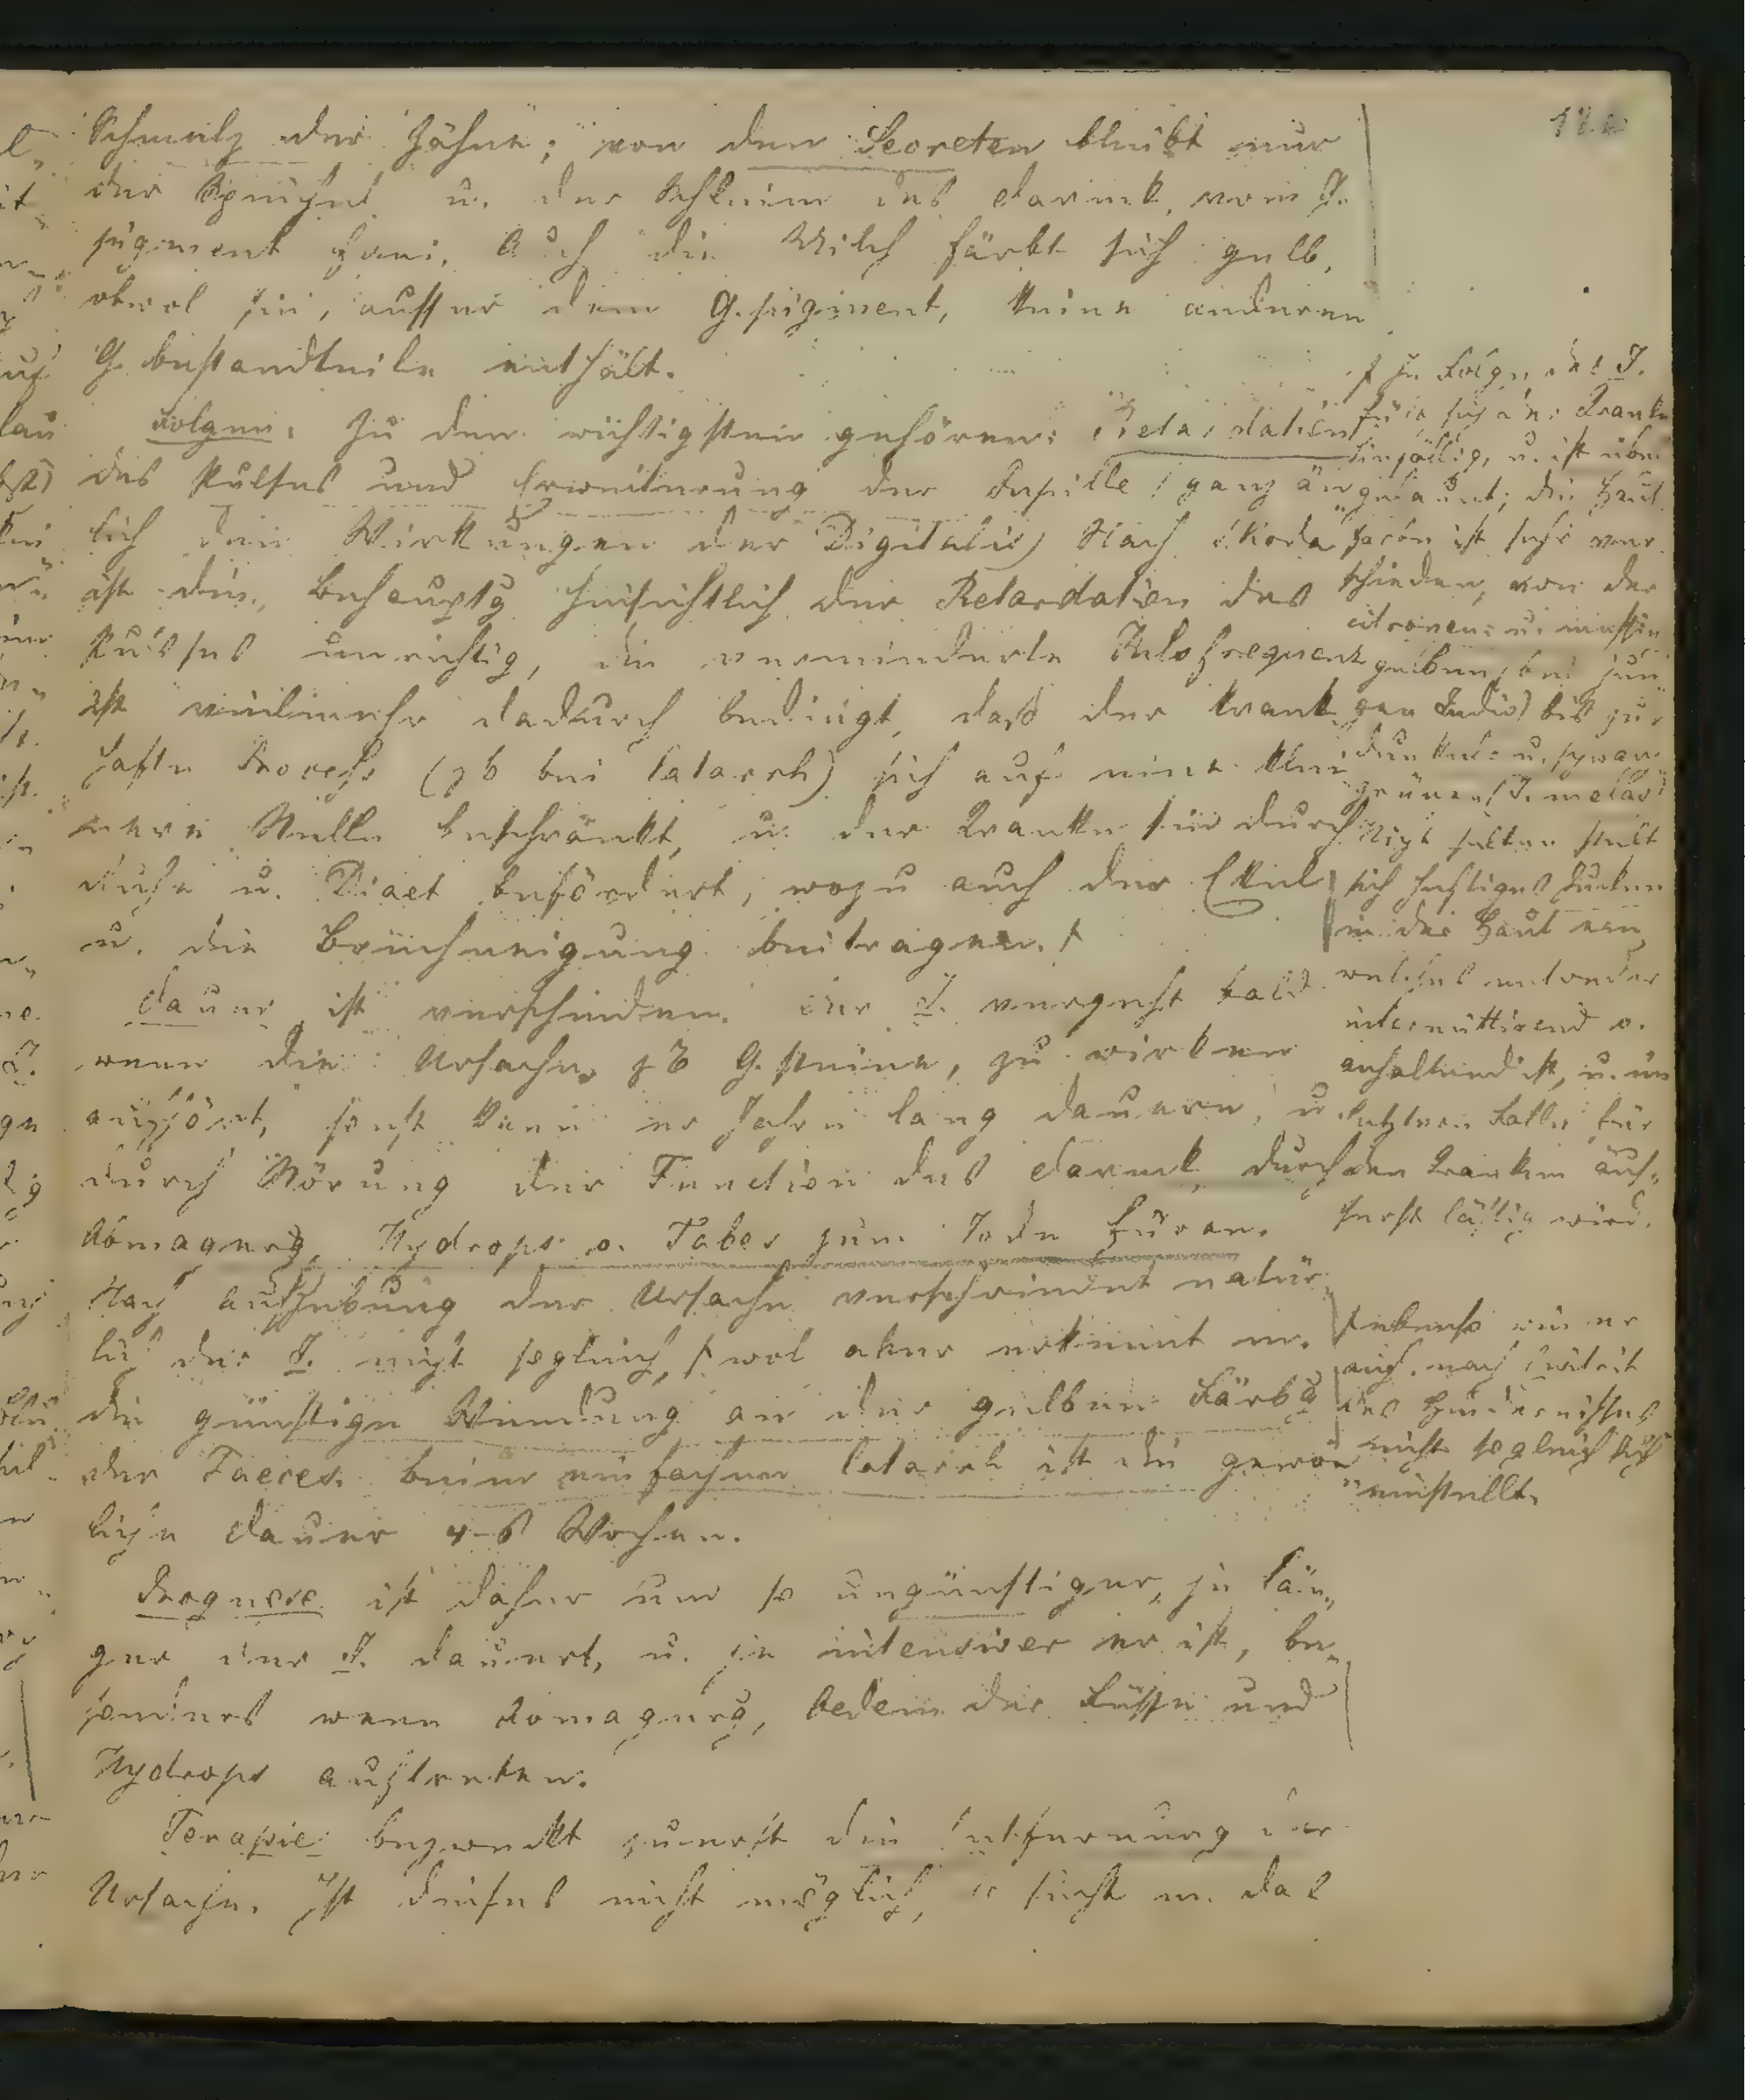 Schmelz der Zähne; von den Secreten bleibt nur
der Speichel u. der Schleim des Darmk. vom G.
pigment frei. Auch die Milch färbt sich gelb,
obwol sie, ausser dem G.pigment, keine anderen
G.bestandteile enthält.
Folgen. Zu den wichtigsten gehören: Retardation
des Pulses und Erweiterung der Pupille (ganz än
lich den Wirkungen der Digitalis) Nach Skoda
ist die Behauptg hinsichtlich der Retardation des
Pulses unrichtig, die verminderte Pulsfrequenz
ist vielmehr dadurch bedingt, daß der krank
hafte Process (zb bei Catarrh) sich auf eine klei
nere Stelle beschränkt, u. der Kranke sie durch
Ruhe u. Diaet befördert, wozu auch der Ekel
u. die Brechneigung beitragen. †
Dauer ist verschieden. Der I. vergeht bald
wenn die Ursache, zB G.steine, zu wirken
aufhört, sonst kann er Jahre lang dauern, u.
durch Störung der Function des Darmk, durch
Abmagerg, Hydrops o. Tabes zum Tode füren.
Nach Aufhebung der Ursache verschwindet natür
lich der I. nicht sogleich, † wol aber erkennt m.
die günstige Wendung an der gelben Färbg
der Faeces. beim einfachen Catarrh ist die gewön
liche Dauer 4-6 Wochen.
Prognose ist daher um so ungünstiger, je län„
ger der I. dauert, u. je intensiver er ist, be„
sonders wenn Abmagerg, Oedem der Füsse und
Hydrops auftreten.
Terapie bezweckt zuerst die Entfernung der
Ursache. Ist dieses nicht möglich, so sucht m. das
† zu Folge des I.
fühlt sich der Kranke
hinfällig, u. ist übel
gelaunt; die Haut
farbe ist sehr ver
schieden, von der
citronen= u. 
gelben (bei jun
gen Indiv) bis zur
dunkel= u. schwarz
grünen (I. melas)
Nicht selten stellt
sich heftiges Jucken
in der Haut ein,
welches entweder
intermittirend o.
anhaltend ist, u. im
letzteren Falle für
den Kranken äus„
serst lästig wird.
† ebenso wie er
auch nach Eintritt
des Hindernisses
nicht sogleich sich
einstellt.